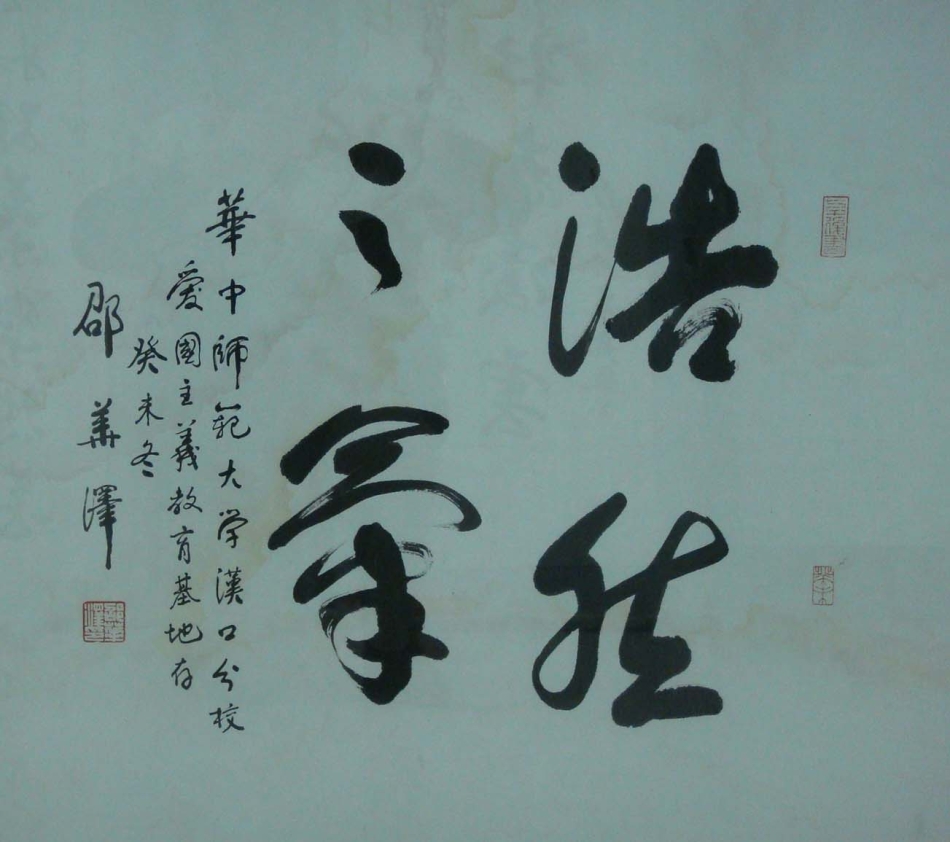 浩然
之氣
華中師範大学漢口分校
愛國主義教育基地存
癸未冬
邵華澤
癸未